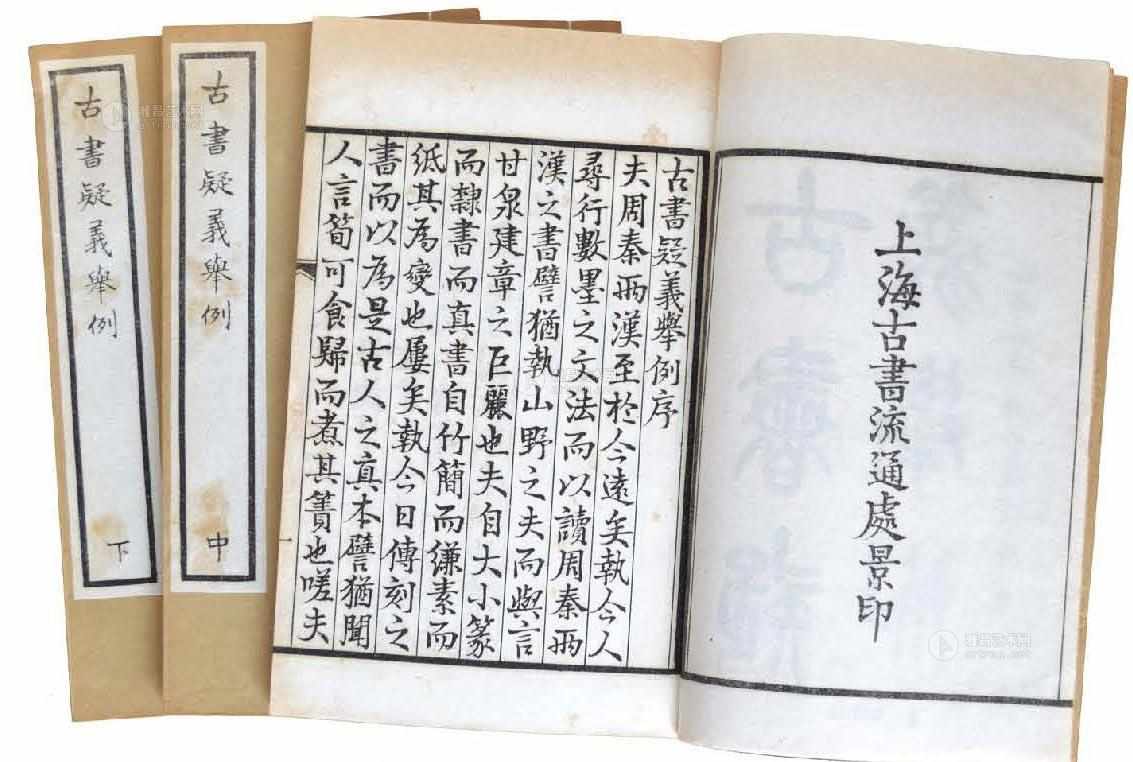 上海古書流通處景印
古書疑義舉例序
夫周秦兩漢至於今遠矣執今人
尋行數墨之文法而以讀周秦兩
漢之書譬猶執山野之夫而與言
甘泉建章之巨麗也夫自大小篆
而隸書而真書自竹簡而縑素而
紙其為變也屢矣執今日傳刻之
書而以為是古人之真本譬猶聞
人言筍可食歸而煮其簀也嗟夫
古書疑義舉例
中
古書疑義舉例
下